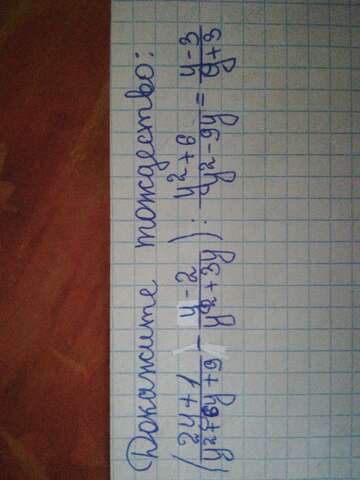 Докажите тождество:
(2y+1/y²+6y+9 - y-2/y²+3y) : y²+6/y²-9y = y-3/y+3